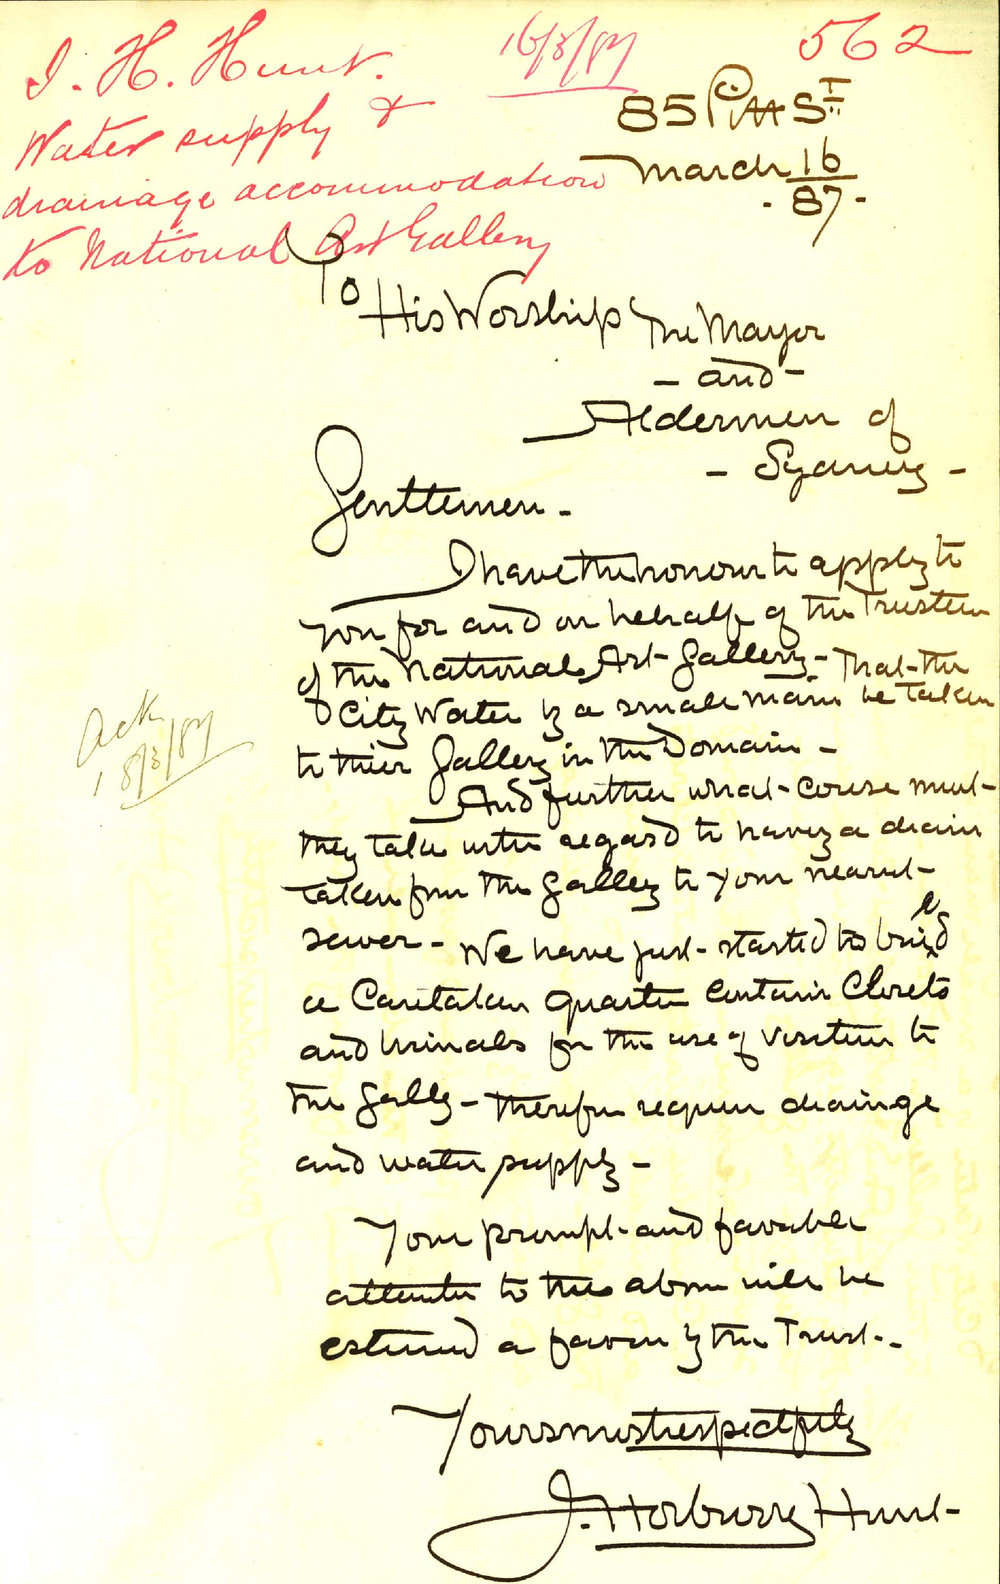 J. H. Hunt.
Water supply &
drainage accommodation
to National Art Gallery
16/3/87
562
85 Pitt St
March 16
87.
To
His Worship The Mayor
- and -
Aldermen of
- Sydney -
Gentlemen -
I have the honour to apply to
you for and on behalf of the Trustees
of the National Art Gallery - That the
City Water by a small main be taken
to their Gallery in the Domain -
And further what course must
they take with regard to having a drain
taken from the Gallery to your nearest
sewer - We have just started to build
a Caretakers quarters contain Closets
and Urinals for the use of visitors to
the Gallery - therefore require drainage
and water supply -
Your prompt and favorable
attention to the above will be
esteemed a favour by the Trust -
Yours most respectfully
J. Horbury Hunt
Ack
18/3/87